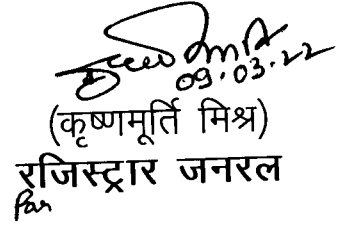 09.03.22
(कृष्णमूर्ति मिश्र)
रजिस्ट्रार जनरल